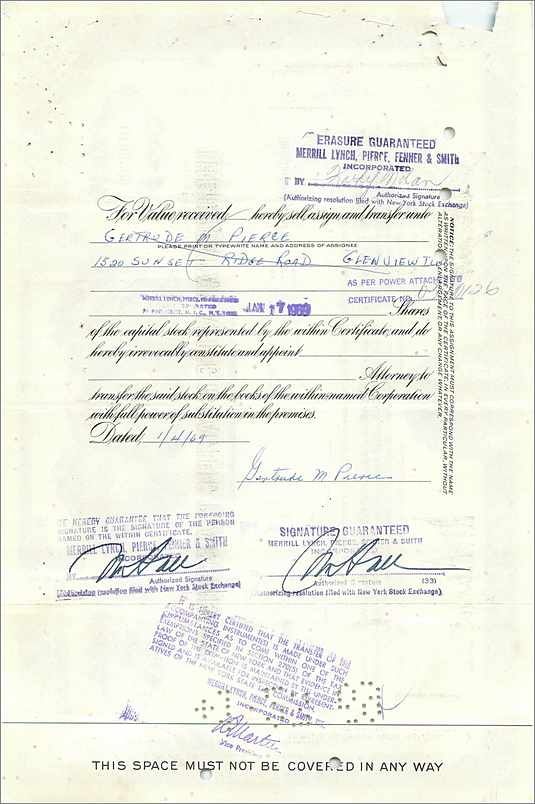 ERASURE GUARANTEED
MERRILL LYNCH, PIERCE, FENNER & SMITH
INCORPORATED
BY
Authorized Signature
(Authorizing resolution filed with New York Stock Exchange)
For Value received, hereby sell, assign and transfer unto
GERTRUDE M PIERCE
PLEASE PRINT OR TYPEWRITE NAME AND ADDRESS OF ASSIGNEE
1520 SUNSET RIDGE ROAD GLENVIEW
AS PER POWER ATTACHED
CERTIFICATE NO.
JAN 17 1969
Shares
of the capital stock represented by the within Certificate, and do
hereby irrevocably constitute and appoint
Attorney to
transfer the said stock on the books of the within named Corporation
with full power of substitution in the premises.
Dated 1/4/69
NOTICE: THE SIGNATURE TO THIS ASSIGNMENT MUST CORRESPOND WITH THE NAME
AS WRITTEN UPON THE FACE OF THE CERTIFICATE, IN EVERY PARTICULAR, WITHOUT
ALTERATION OR ENLARGEMENT OR ANY CHANGE WHATEVER.
Gertrude M Pierce
WE HEREBY GUARANTEE THAT THE FOREGOING
SIGNATURE IS THE SIGNATURE OF THE PERSON
NAMED ON THE WITHIN CERTIFICATE.
MERRILL LYNCH, PIERCE, FENNER & SMITH
INCORPORATED
BY
Authorized Signature
(Authorizing resolution filed with New York Stock Exchange)
SIGNATURE GUARANTEED
MERRILL LYNCH, PIERCE, FENNER & SMITH
INCORPORATED
Authorized Signature
(Authorizing resolution filed with New York Stock Exchange)
IT IS HEREBY CERTIFIED THAT THE TRANSFER OF THE
ACCOMPANYING INSTRUMENT(S) IS MADE UNDER SUCH
CIRCUMSTANCES AS TO COME WITHIN ONE OF THE
EXEMPTIONS SPECIFIED IN SECTION 270(5) OF THE TAX
LAW OF THE STATE OF NEW YORK AND THAT EVIDENCE IN
PROOF OF THE EXEMPTION IS MAINTAINED BY THE UNDER-
SIGNED AND IS AVAILABLE FOR INSPECTION BY REPRESENT-
ATIVES OF THE NEW YORK STATE TAX COMMISSION.
MERRILL LYNCH, PIERCE, FENNER & SMITH
INCORPORATED
Vice President
THIS SPACE MUST NOT BE COVERED IN ANY WAY